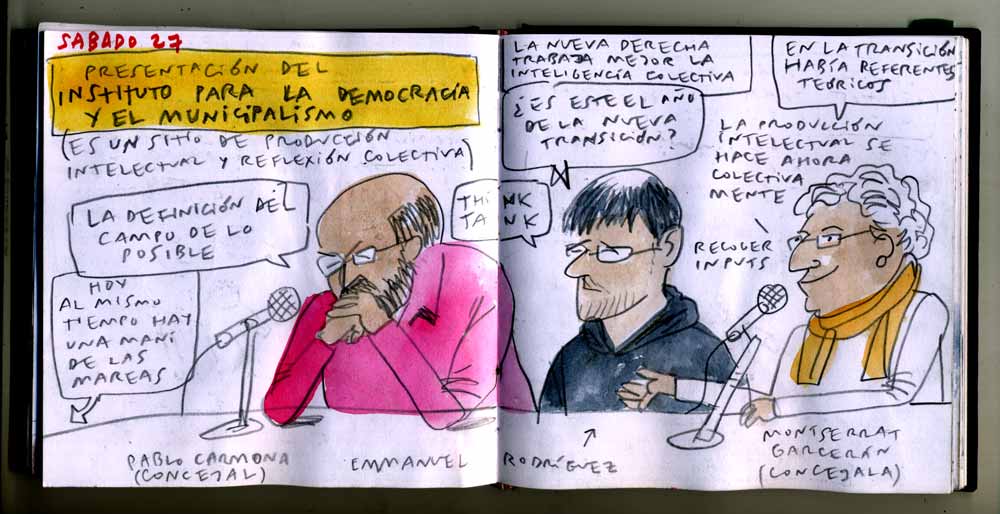 SABADO 27
PRESENTACIÓN DEL
INSTITUTO PARA LA DEMOCRACÍA
Y EL MUNICIPALISMO
(ES UN SITIO DE PRODUCCIÓN
INTELECTUAL Y REFLEXIÓN COLECTIVA)
LA DEFINICIÓN DEL
CAMPO DE LO
POSIBLE
HOY
AL MISMO
TIEMPO HAY
UNA MANI
DE LAS
MAREAS
THINK
TANK
PABLO CARMONA
(CONCEJAL)
EMMANUEL RODRÍGUEZ
LA NUEVA DERECHA
TRABAJA MEJOR LA
INTELIGENCIA COLECTIVA
¿ES ESTE EL AÑO
DE LA NUEVA
TRANSICIÓN?
EN LA TRANSICIÓN
HABÍA REFERENTES
TEÓRICOS
LA PRODUCCIÓN
INTELECTUAL SE
HACE AHORA
COLECTIVA
MENTE
RECOGER
INPUTS
MONTSERRAT
GARCERÁN
(CONCEJALA)